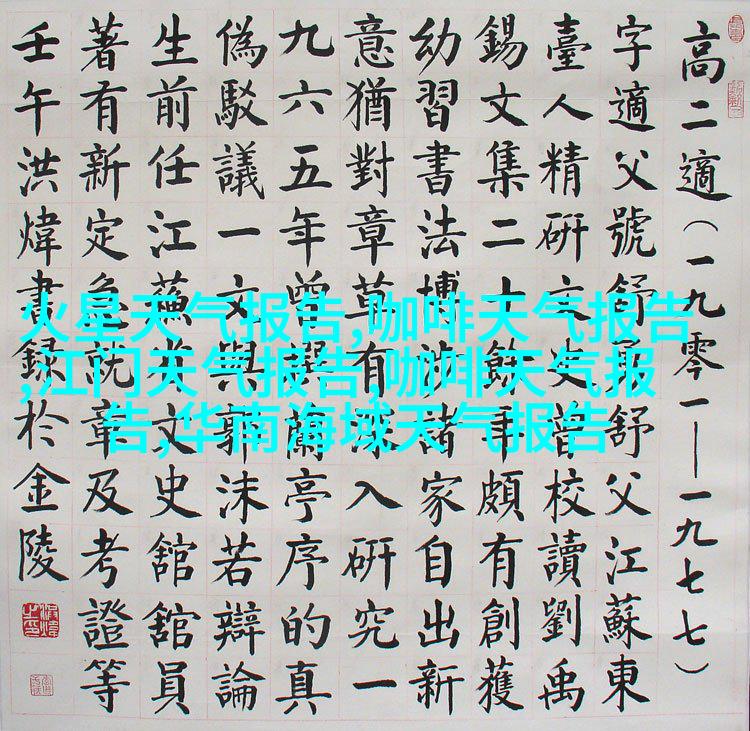 高二適(一九零一——一九七七)
字適父號舒舒父江蘇東
臺人精研文史曾校讀劉禹
錫文集二十餘年頗有創獲
幼習書法博涉諸家自出新
意猶對章草有深入研究一
九六五年曾撰蘭亭序的真
偽駁議一文與郭沫若辯論
生前任江蘇省文史舘舘員
著有新定急就章及考證等
壬午洪煒書録於金陵
火星天气报告,咖啡天气报告
,江门天气报告,咖啡天气报
告,华南海域天气报告